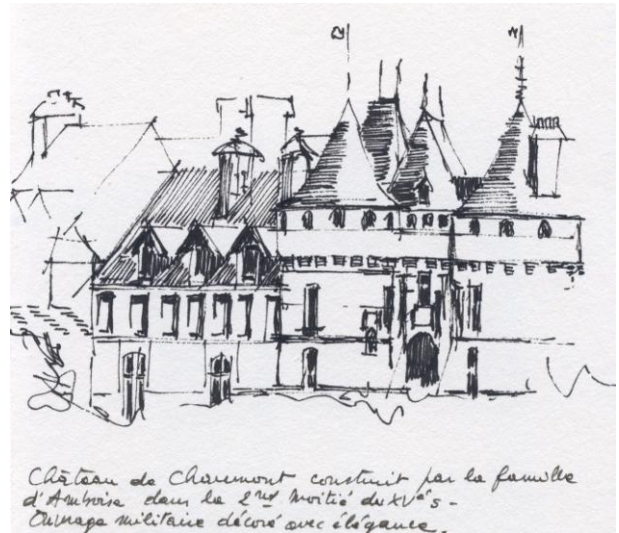 Château de Chaumont construit par la famille
d'Amboise dans la 2nd moitié du XVe s -
Ouvrage militaire décoré avec élégance.